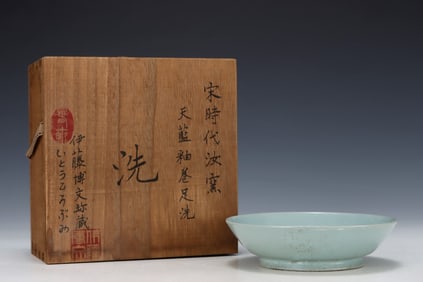 宋時代汝窯
天藍釉卷足洗
洗
伊藤博文珍藏
いとうひろぶみ